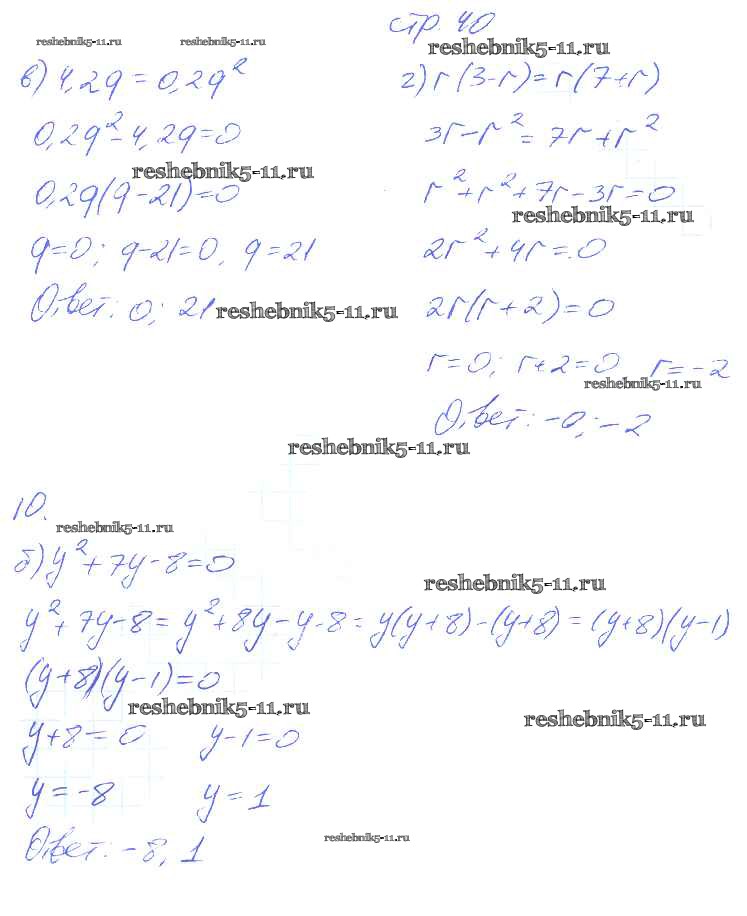 стр. 40
reshebnik5-11.ru reshebnik5-11.ru reshebnik5-11.ru
в) 4,2q = 0,2q²
0,2q² - 4,2q = 0
reshebnik5-11.ru
0,2q(q - 21) = 0
q = 0; q - 21 = 0, q = 21
Ответ: 0; 21 reshebnik5-11.ru
г) r(3 - r) = r(7 + r)
3r - r² = 7r + r²
r² + r² + 7r - 3r = 0
reshebnik5-11.ru
2r² + 4r = 0
2r(r + 2) = 0
r = 0; r + 2 = 0 r = -2
reshebnik5-11.ru
Ответ: -0; -2
reshebnik5-11.ru
10.
reshebnik5-11.ru
б) y² + 7y - 8 = 0
reshebnik5-11.ru
y² + 7y - 8 = y² + 8y - y - 8 = y(y + 8) - (y + 8) = (y + 8)(y - 1)
(y + 8)(y - 1) = 0
reshebnik5-11.ru reshebnik5-11.ru
y + 8 = 0 y - 1 = 0
y = -8 y = 1
reshebnik5-11.ru
Ответ: -8, 1